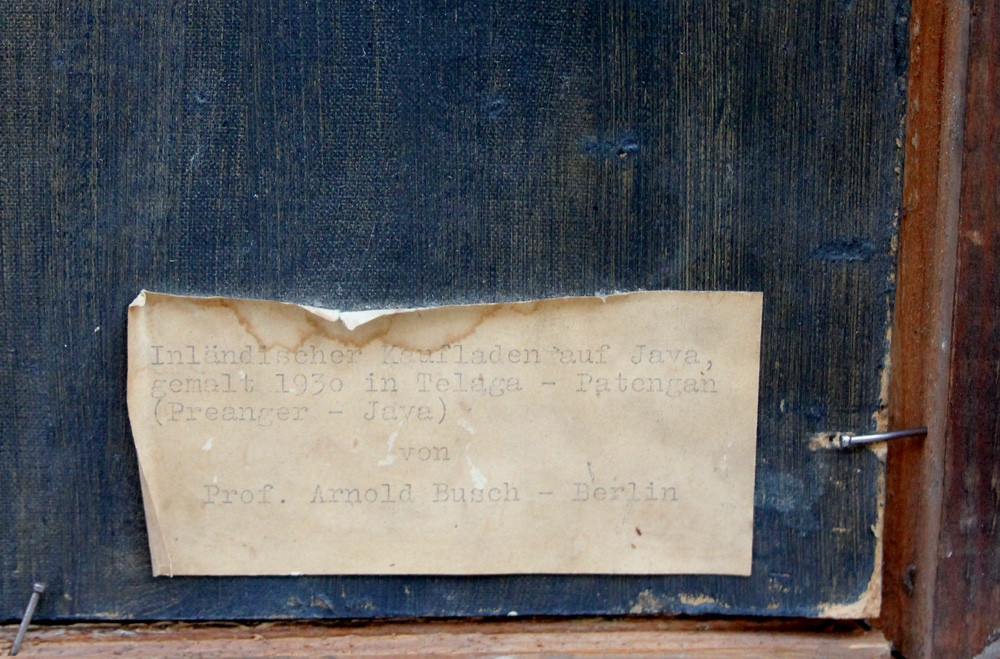 Inländischer Kaufladen auf Java,
gemalt 1930 in Telaga - Patengan
(Preanger - Java)
von
Prof. Arnold Busch - Berlin